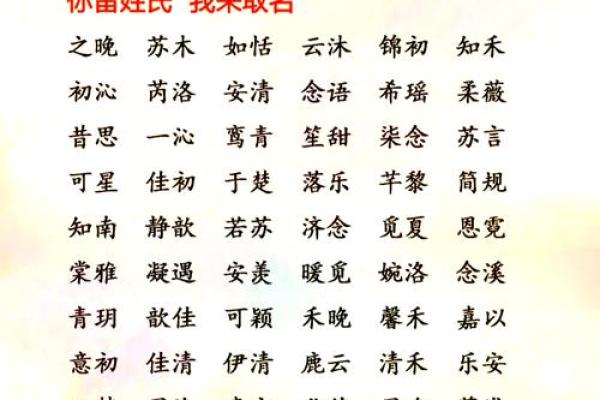 你留姓氏 我来取名
之晚 苏木 如恬 云沐 锦初 知禾
初沁 芮洛 安清 念语 希瑶 柔薇
昔思 一沁 鸾青 笙甜 柒念 苏言
可星 佳初 于楚 落乐 芊黎 简规
知南 静歆 若苏 济念 觅夏 恩霓
棠雅 凝遇 安羡 暖觅 婉洛 念溪
青玥 歆佳 可颖 禾晚 馨禾 嘉以
意初 佳清 伊清 鹿云 清禾 乐安